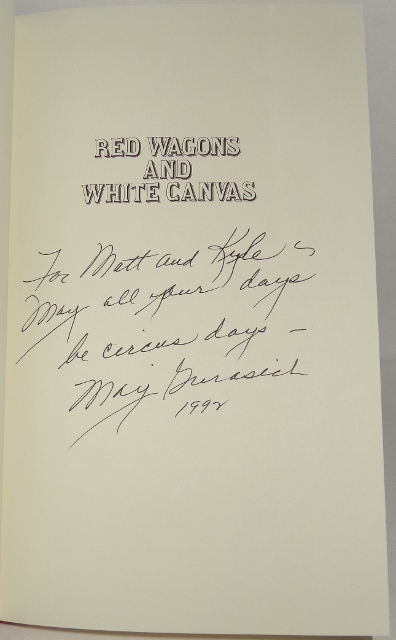 RED WAGONS
AND
WHITE CANVAS
For Matt and Kyle
May all your days
be circus days –
Marj Gurasich
1992